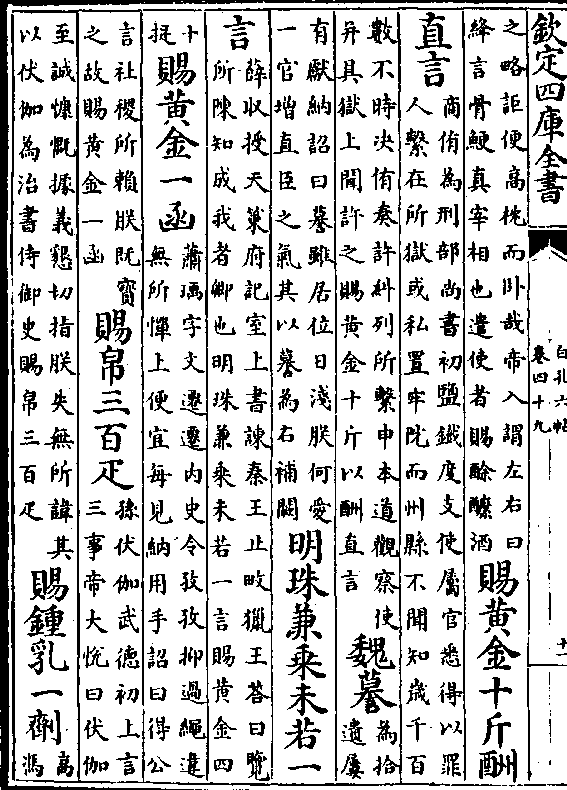 欽定四庫全書
白孔六帖
卷四十九
十一
之略詎便高枕而卧哉帝入謂左右曰
絳言骨鯁真宰相也遣使者賜酴醿酒
賜黃金十斤酬
直言
商侑為刑部尚書初鹽鐵度支使屬官悉得以罪
人繫在所獄或私置牢院而州縣不聞知歲千百
數不時決侑奏許糾列所繫申本道觀察使
并其獄上聞許之賜黃金十斤以酬直言
魏謩
為拾
遺屢
有獻納詔曰謩雖居位日淺朕何愛
一官增直臣之氣其以謩為右補闕
明珠兼乘未若一
言
薛收授天策府記室上書諫秦王止畋獵王荅曰覽
所陳知成我者卿也明珠兼乘未若一言賜黃金四
十
挺
賜黃金一函
蕭瑀字文遷遷内史令孜孜抑過繩違
無所憚上便宜每見納用手詔曰得公
言社稷所賴朕既寳
之故賜黃金一函
賜帛三百疋
孫伏伽武德初上言
三事帝大悅曰伏伽
至誠慷慨據義懇切指朕失無所諱其
以伏伽為治書侍御史賜帛三百疋
賜鍾乳一劑
高
馮